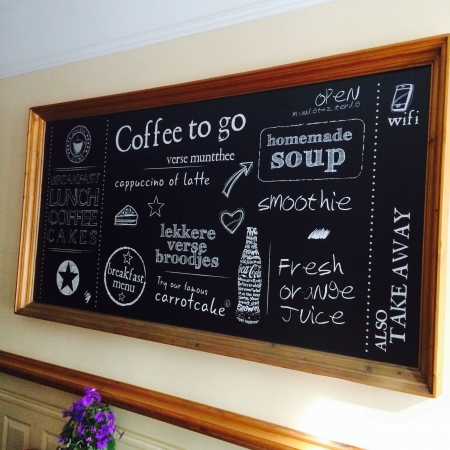 BREAKFAST
LUNCH
COFFEE
CAKES
Coffee to go
verse muntthee
cappuccino of latte
lekkere
verse
broodjes
breakfast
menu
Try our famous
carrotcake
Coca-Cola
OPEN
homemade
soup
smoothie
Fresh
orange
Juice
wifi
ALSO
TAKE AWAY